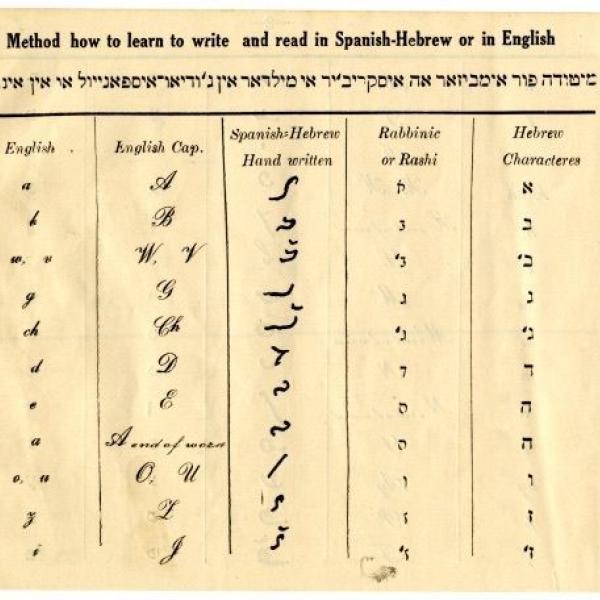 Method how to learn to write and read in Spanish-Hebrew or in English
מיטודה פור אימביזאר אה איסקריב׳יר אי מילדאר אין ג׳ודיאו־איספאנייול או אין אינ
Spanish=Hebrew Rabbinic Hebrew
English . English Cap. Hand written or Rashi Characteres
a A א א
b B ב ב
w, v W, V ב׳ ב׳
g G ג ג
ch Ch ג׳ ג׳
d D ד ד
e E ה ה
a A end of word ה ה
o, u O, U ו ו
z Z ז ז
i J ז׳ ז׳